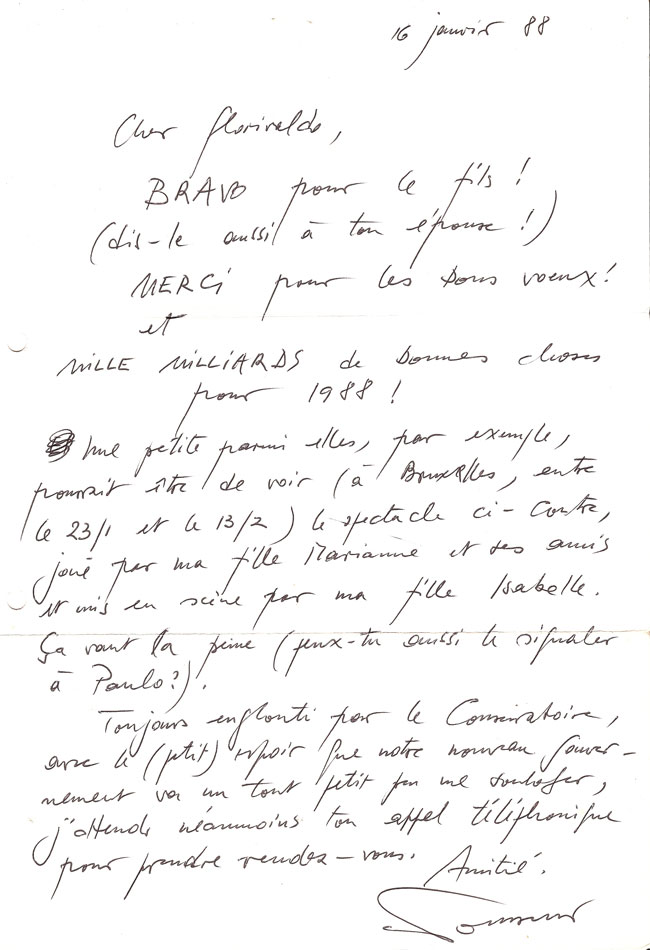 16 janvier 88
Cher Florivaldo,
BRAVO pour le fils !
(dis-le aussi à ton épouse !)
MERCi pour les bons voeux !
et
MILLE MILLiARDS de bonnes choses
pour 1988 !
Une petite parmi elles, par exemple,
pourrait être de voir (à Bruxelles, entre
le 23/1 et le 13/2) le spectacle ci-contre,
joué par ma fille Marianne et ses amis
et mis en scène par ma fille Isabelle.
Ça vaut la peine (peux-tu aussi le signaler
à Paulo?).
Toujours englouti par le Conservatoire,
avec le (petit) espoir que notre nouveau gouver-
nement va un tout petit peu me soulager,
j'attends néanmoins ton appel téléphonique
pour prendre rendez-vous. Amitié.